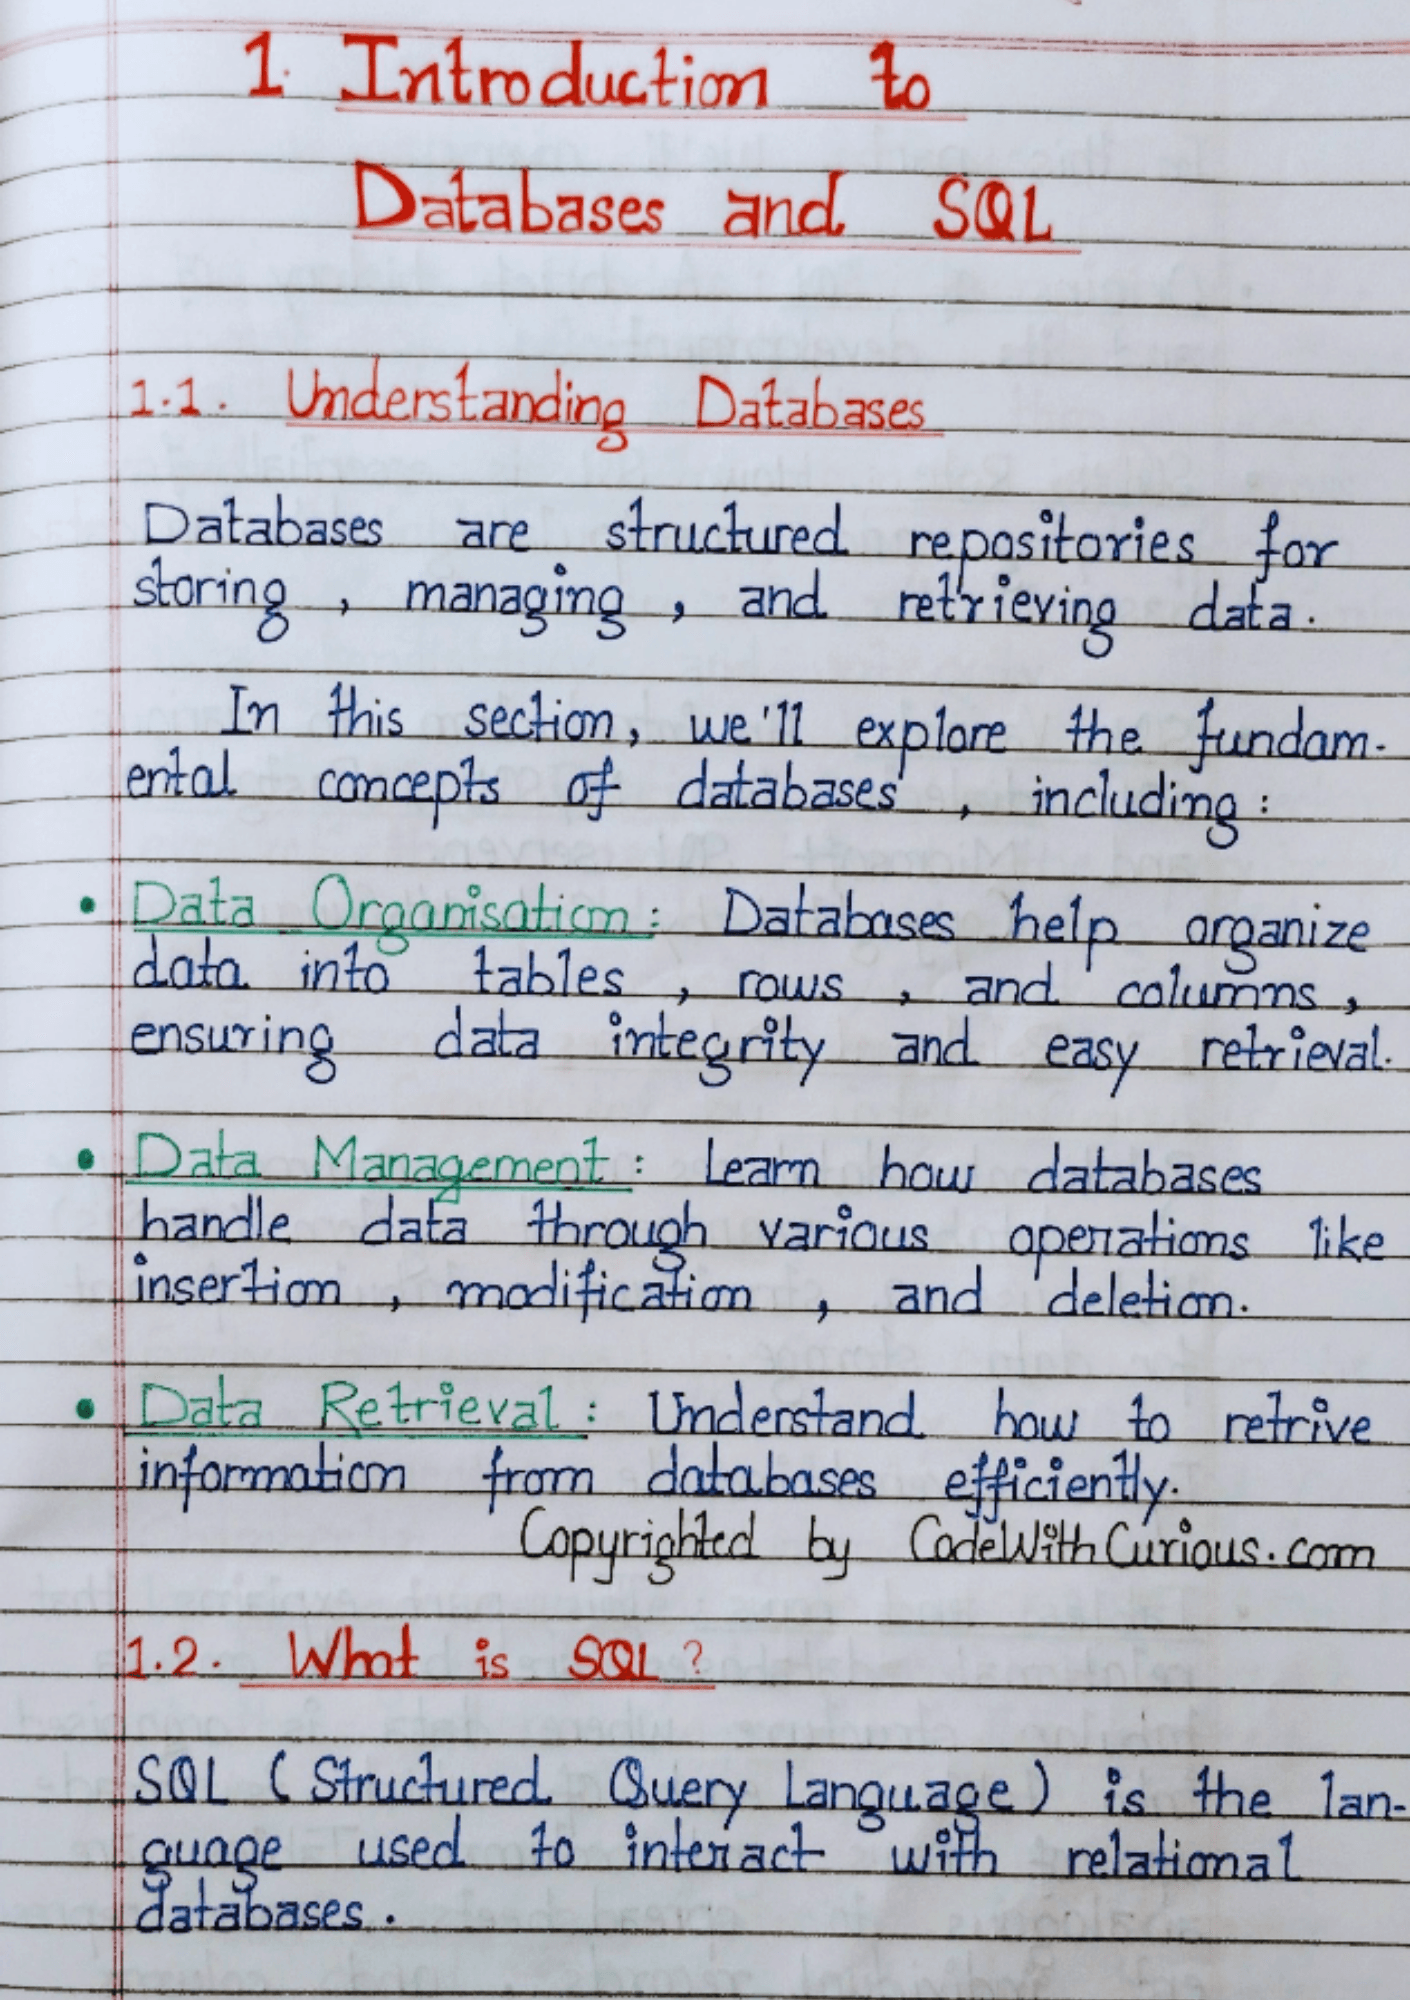 1. Introduction to
Databases and SQL
1.1. Understanding Databases
Databases are structured repositories for
storing , managing , and retrieving data.
In this section, we'll explore the fundam-
ental concepts of databases , including :
• Data Organisation : Databases help organize
data into tables , rows , and columns ,
ensuring data integrity and easy retrieval.
• Data Management : Learn how databases
handle data through various operations like
insertion , modification , and deletion.
• Data Retrieval : Understand how to retrive
information from databases efficiently.
Copyrighted by CodeWithCurious.com
1.2. What is SQL ?
SQL ( Structured Query Language ) is the lan-
guage used to interact with relational
databases .